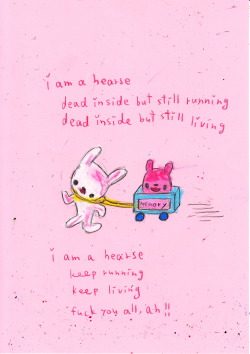 i am a hearse
dead inside but still running
dead inside but still living
Memory
i am a hearse
keep running
keep living
fuck you all, ah!!